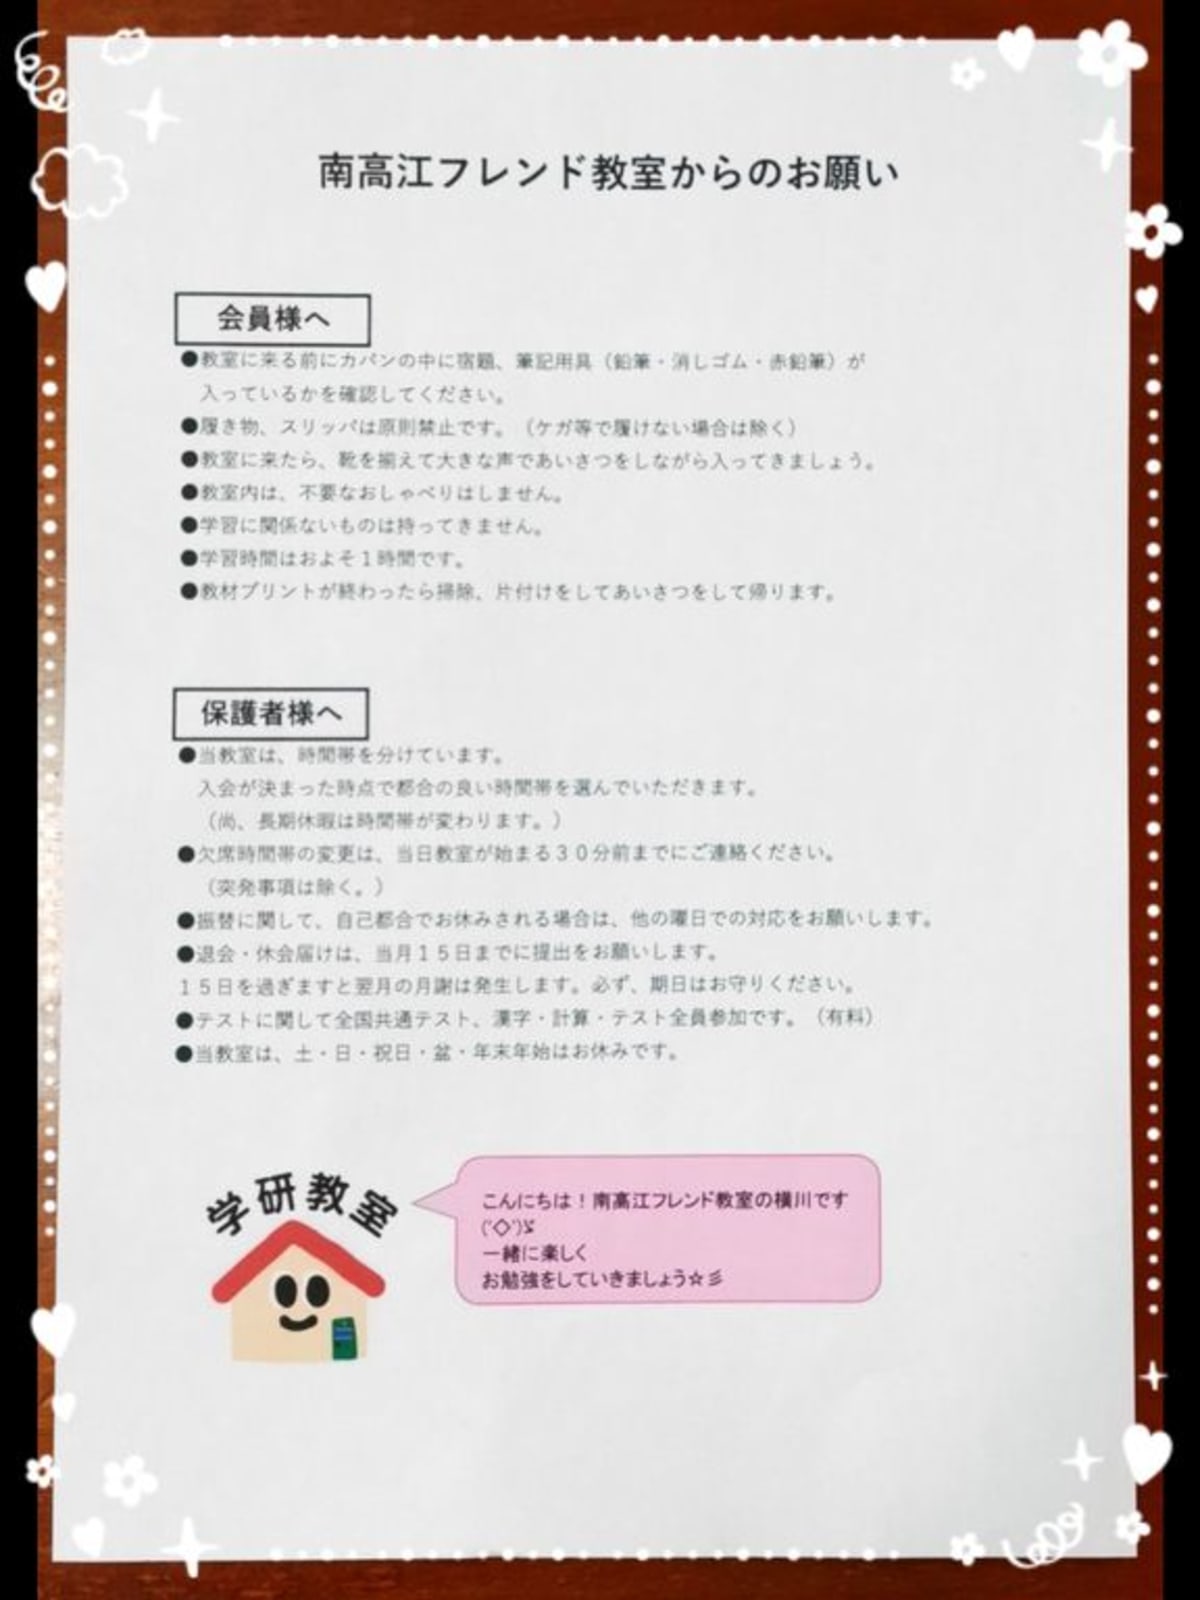 南高江フレンド教室からのお願い
会員様へ
●教室に来る前にカバンの中に宿題、筆記用具（鉛筆・消しゴム・赤鉛筆）が
入っているかを確認してください。
●履き物、スリッパは原則禁止です。（ケガ等で履けない場合は除く）
●教室に来たら、靴を揃えて大きな声であいさつをしながら入ってきましょう。
●教室内は、不要なおしゃべりはしません。
●学習に関係ないものは持ってきません。
●学習時間はおよそ１時間です。
●教材プリントが終わったら掃除、片付けをしてあいさつをして帰ります。
保護者様へ
●当教室は、時間帯を分けています。
入会が決まった時点で都合の良い時間帯を選んでいただきます。
（尚、長期休暇は時間帯が変わります。）
●欠席時間帯の変更は、当日教室が始まる３０分前までにご連絡ください。
（突発事項は除く。）
●振替に関して、自己都合でお休みされる場合は、他の曜日での対応をお願いします。
●退会・休会届けは、当月１５日までに提出をお願いします。
１５日を過ぎますと翌月の月謝は発生します。必ず、期日はお守りください。
●テストに関して全国共通テスト、漢字・計算・テスト全員参加です。（有料）
●当教室は、土・日・祝日・盆・年末年始はお休みです。
学研教室
こんにちは！南高江フレンド教室の横川です
('◇')ゞ
一緒に楽しく
お勉強をしていきましょう☆彡